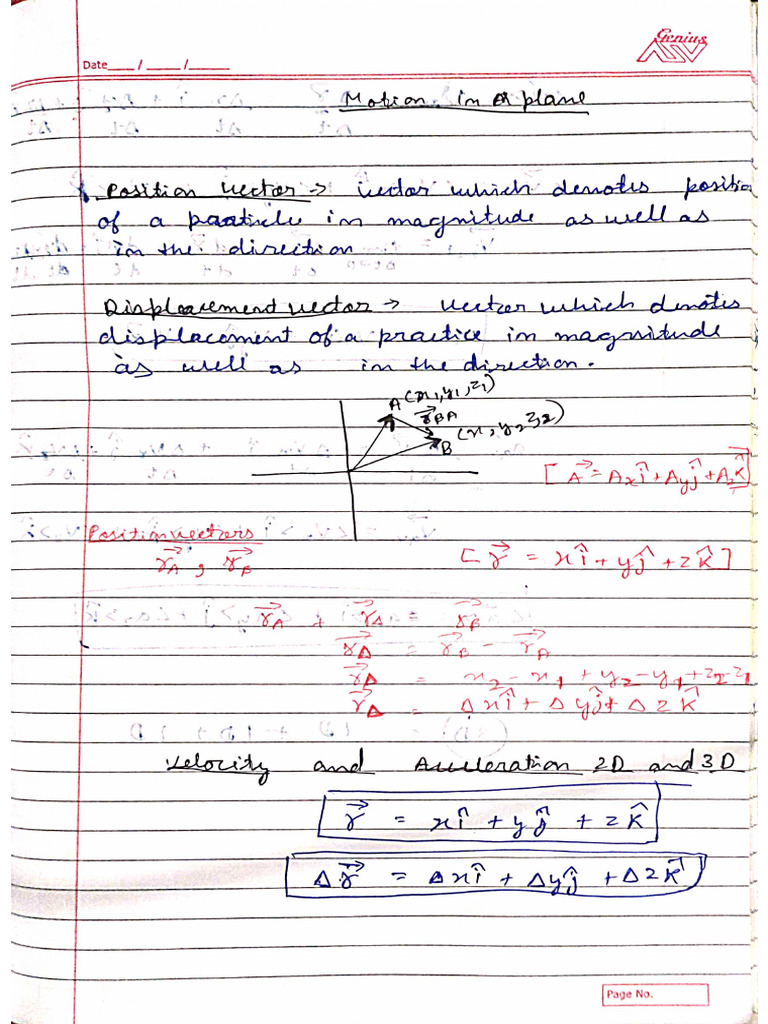 Genius
Date____/____/____
Motion in a plane
Position vector → vector which denotes positio
of a particle in magnitude as well as
in the direction
Displacement vector → vector which denotes
displacement of a practice in magnitude
as well as in the direction.
A (x₁, y₁, z₁)
r⃗BA
(x, y₂ z₂)
B
[A⃗ = Axî + Ayĵ + Azk̂]
Position vectors
r⃗A , r⃗B
[r⃗ = xî + yĵ + zk̂]
r⃗A + r⃗Δ = r⃗B
r⃗Δ = r⃗B - r⃗A
r⃗Δ = x₂ - x₁ + y₂ - y₁ + z₂ - z₁
r⃗Δ = Δxî + Δyĵ + Δzk̂
Velocity and Acceleration 2D and 3D
r⃗ = xî + yĵ + zk̂
Δr⃗ = Δxî + Δyĵ + Δzk̂
Page No.